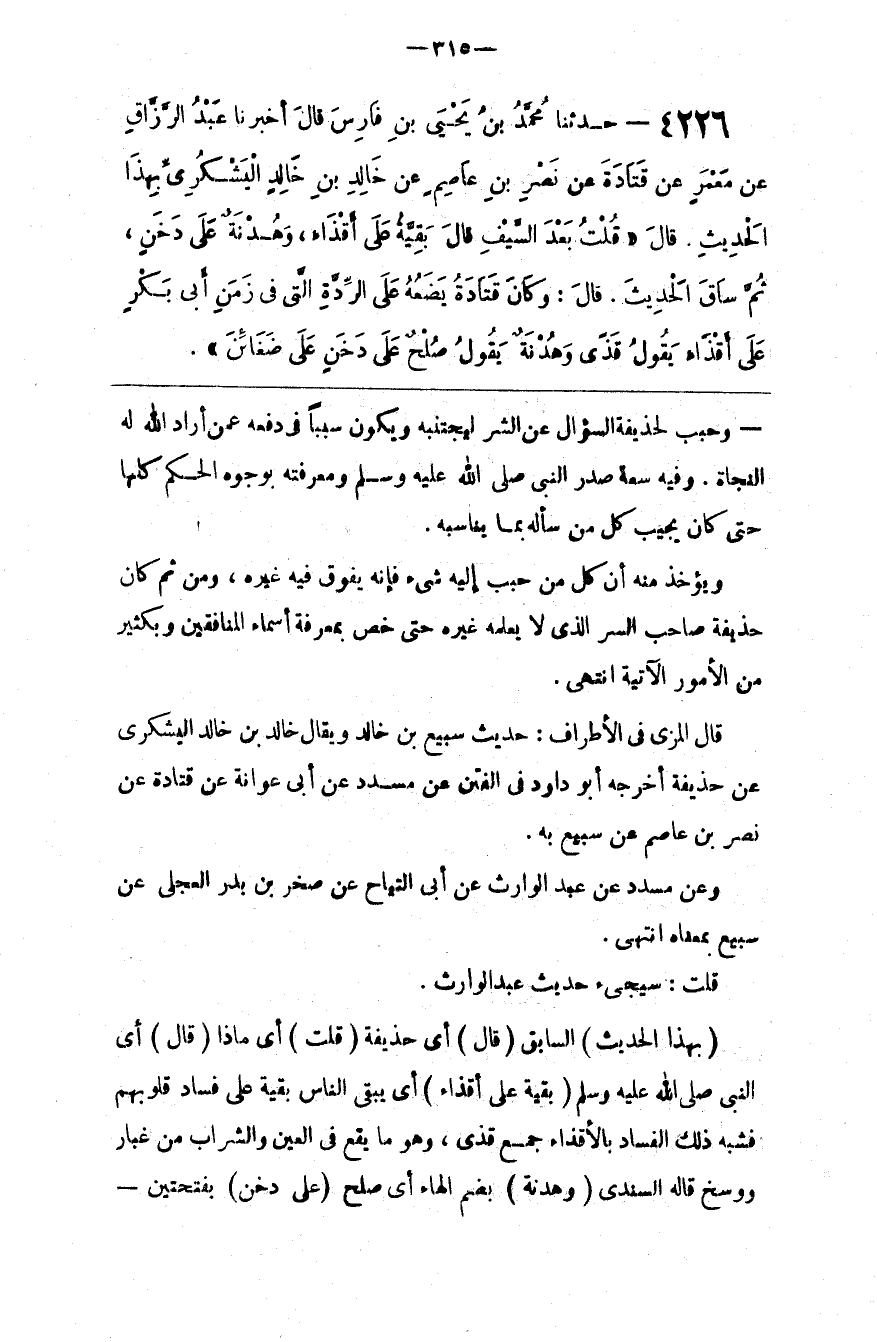 —٣١٥—
٤٢٢٦ — حــدثنا مُحمَّدُ بنُ يَحْـيَى بنِ فَارِسَ قالَ أخبرنا عَبْدُ الرَّزَّاقِ
عن مَعْمَرٍ عن قَتَادَةَ عن نَصْرِ بنِ عاَصِمٍ عن خَالِدِ بنِ خَالِدٍ الْيَشْـكُرِىِّ بِهِذَا
الحَدِيثِ . قالَ « قُلْتُ بَعْدَ السَّيْفِ قالَ بَقِيَّةٌ عَلَى أَقْذَاء ، وَهُـدْنَةٌ عَلَى دَخَنٍ ،
ثُمَّ ساَقَ الحَدِيثَ . قالَ : وَكَانَ قَتَادَةُ يَضَعُهُ عَلَى الرِّدَّةِ الَّتى فى زَمَنِ أَبى بَـكْرٍ
عَلَى أَقْذَاء يَقُولُ قَذًى وَهُدْنَةٌ يَقُولُ صُلْحٌ عَلَى دَخَنٍ عَلَى ضَغَائِنَ » .
— وحبب لحذيفة السؤال عن الشر ليجتنبه ويكون سبباً فى دفعه عمن أراد الله له
النجاة . وفيه سعة صدر النبى صلى الله عليه وسـلم ومعرفته بوجوه الحـكم كلها
حتى كان يجيب كل من سأله بمـا يناسبه .
ويؤخذ منه أن كل من حبب إليه شىء فإنه يفوق فيه غيره ، ومن ثم كان
حذيفة صاحب السر الذى لا يعلمه غيره حتى خص بمعرفة أسماء المنافقين وبكثير
من الأمور الآتية انتهى .
قال المزى فى الأطراف : حديث سبيع بن خالد ويقال خالد بن خالد اليشكرى
عن حذيفة أخرجه أبو داود فى الفتن عن مســدد عن أبى عوانة عن قتادة عن
نصر بن عاصم عن سبيع به .
وعن مسدد عن عبد الوارث عن أبى التياح عن صخر بن بدر العجلى عن
سبيع بمعناه انتهى .
قلت : سيجىء حديث عبدالوارث .
( بهذا الحديث ) السابق ( قال ) أى حذيفة ( قلت ) أى ماذا ( قال ) أى
النبى صلى الله عليه وسلم ( بقية على أقذاء ) أى يبقى الناس بقية على فساد قلوبهم
فشبه ذلك الفساد بالأقذاء جمـع قذى ، وهو ما يقع فى العين والشراب من غبار
ووسخ قاله السندى ( وهدنة ) بضم الهاء أى صلح (على دخن) بفتحتين —